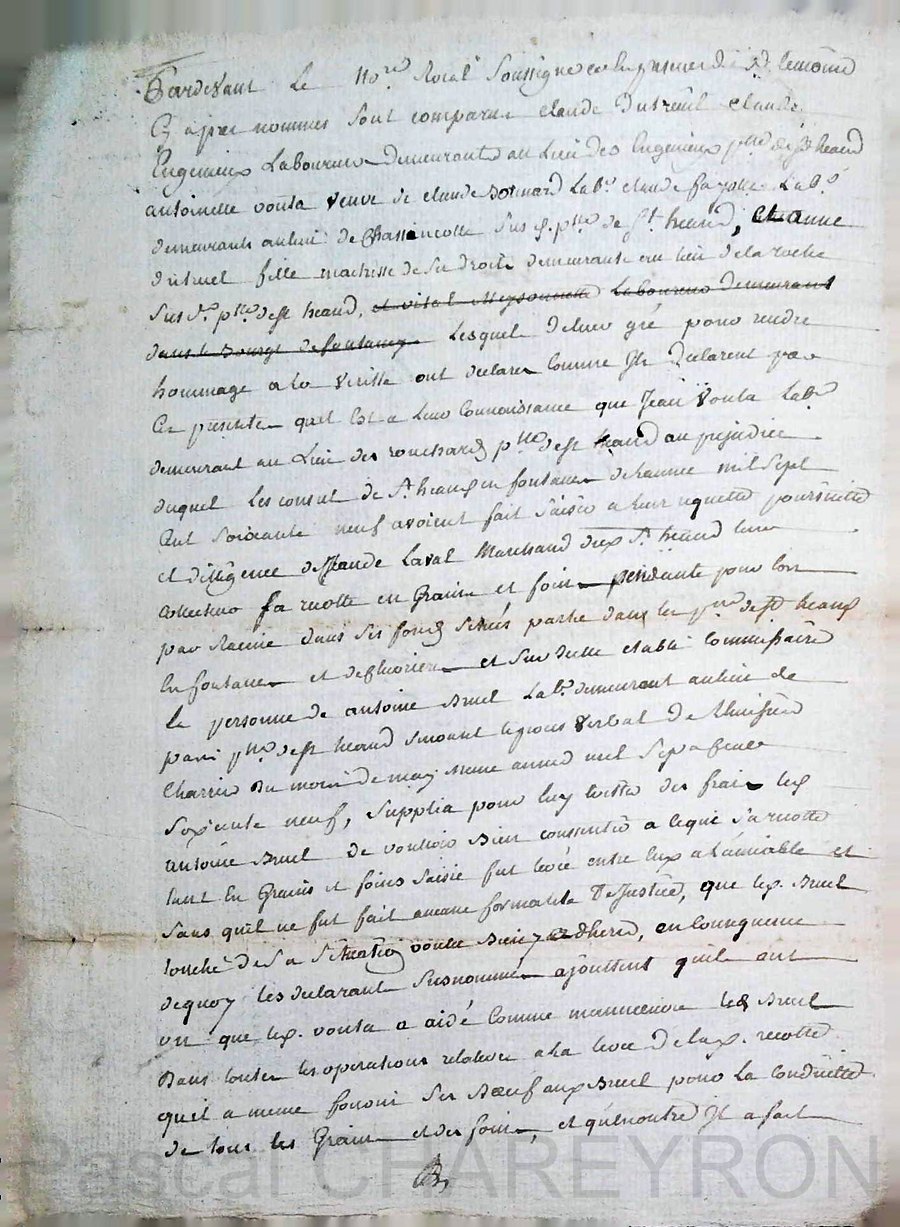 Pardevant Le No.re Royal Soussigné en présence des témoins
Cy après nommés sont comparus claude dutreüil claude
Eugenieux Laboureurs demeurants au Lieu des Eugenieux p.sse de st heand
antoinette vouta veuve de claude Bonnard Lab.r claude fayolle Lab.r
demeurants au lieu de Chassincotte susd. p.sse de St heand, et anne
dutreuil fille maitresse de ses droits demeurante au lieu de la roche
Susd. p.sse de st heand, et vital Meysonnette Laboureur demeurant
dans le Bourg de fontanes Lesquels de leur gré pour rendre
hommage a la Veritté ont declarés comme Ils declarent par
Ces présentes quil Est a leur Connaissance que Jean Vouta Lab.r
demeurant au Lieu des rouchards p.sse de st heand au préjudice
duquel les consuls de St heand en fontanes de l'année mil sept
Cent soixante neuf avoient fait saisir a leur requette poursuitte
et dilligence de claude Laval Marchand dud. St heand leur
collecteur sa recolte en Grains et foins pendante pour lors
par Racine dans ses fonds scitués partie dans les p.sses de st heand
en fontanes et de et sur icelle etabli Commissaire
la personne de antoine Bruel Lab.r demeurant au lieu de
p.sse de st heand suivant le procès Verbal de l'huissier
Charrier Du mois de may même année mil sept Cent
soixente neuf, supplia pour luy Evitter des frais led.
antoine Bruel de vouloir Bien consentir a ce que sa recolte
tant En Grains et foins saisie fut levée entre Eux a l'amiable et
sans quil ne fut fait aucune formalité De Justice, que led. Bruel
touché de sa situation voulut Bien y adherer, en conséquence
de quoy les declarants susnommés ajouttent quils ont
vu que led. vouta a aidé Comme manoeuvre led. Bruel
Dans toutes les operations relatives a la levée de lad. recolte
quil a meme fourni ses Boeufs aud. Bruel pour la conduitte
de tous les Grains et des foins, et qu'en outre Il a fait
Pascal CHAREYRON